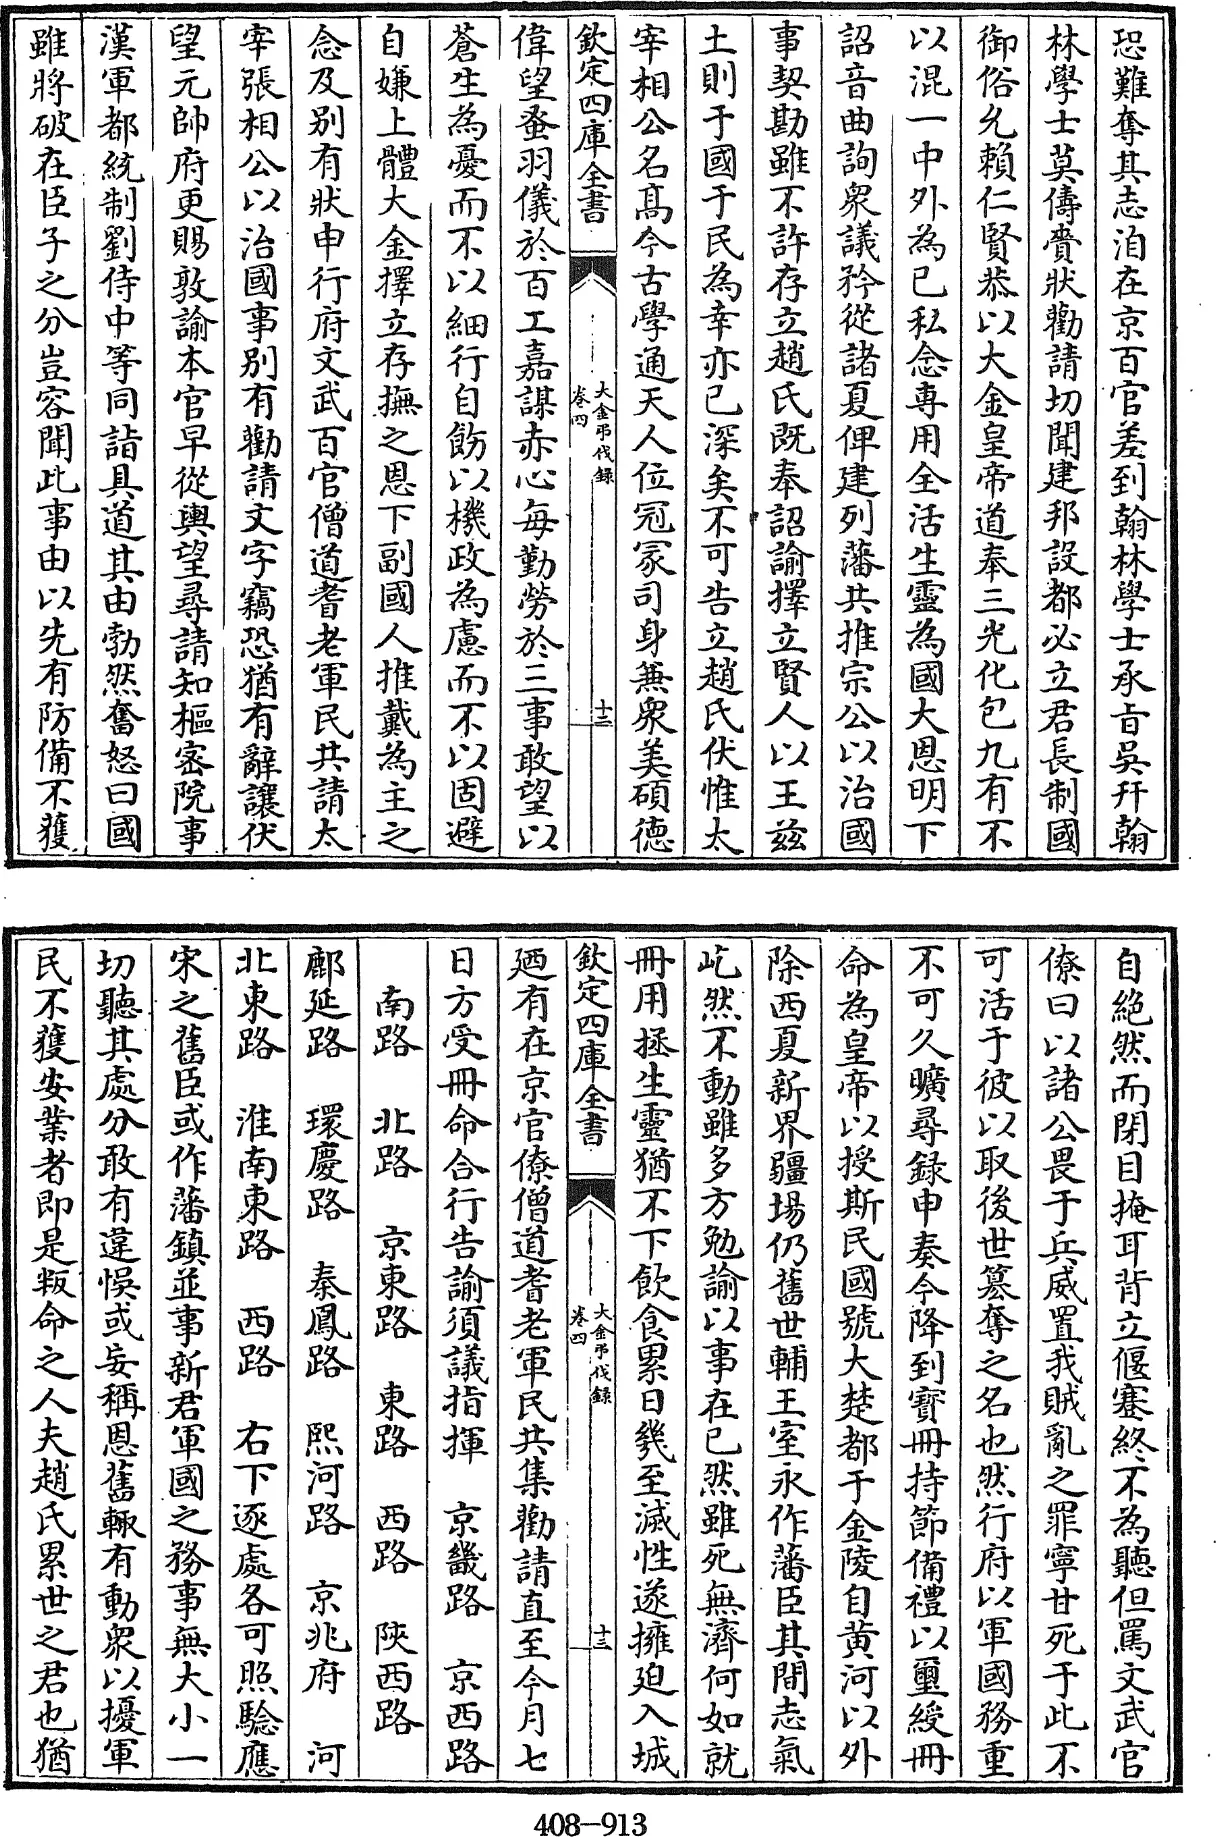 恐難奪其志洎在京百官差到翰林學士承㫖吳幵翰
林學士莫儔賫狀勸請切聞建邦設都必立君長制國
御俗允賴仁賢恭以大金皇帝道奉三光化包九有不
以混一中外為已私念専用全活生靈為國大恩明下
詔音曲詢衆議矜從諸夏俾建列藩共推宗公以治國
事契勘雖不許存立趙氏既奉詔諭擇立賢人以王兹
土則于國于民為幸亦已深矣不可告立趙氏伏惟太
宰相公名髙今古學通天人位冠冢司身兼衆美碩徳
欽定四庫全書
大金弔伐錄
卷四
十二
偉望蚤羽儀於百工嘉謀赤心每勤勞於三事敢望以
蒼生為憂而不以細行自飭以機政為慮而不以固避
自嫌上體大金擇立存撫之恩下副國人推戴為主之
念及别有狀申行府文武百官僧道耆老軍民共請太
宰張相公以治國事别有勸請文字竊恐猶有辭讓伏
望元帥府更賜敦諭本官早從輿望尋請知樞密院事
漢軍都統制劉侍中等同詣具道其由勃然奮怒曰國
雖將破在臣子之分豈容聞此事由以先有防備不獲
自絶然而閉目掩耳背立偃蹇終不為聽但罵文武官
僚曰以諸公畏于兵威置我賊亂之罪寧甘死于此不
可活于彼以取後世簒奪之名也然行府以軍國務重
不可久曠尋録申奏今降到寳冊持節備禮以璽綬冊
命為皇帝以授斯民國號大楚都于金陵自黄河以外
除西夏新界疆場仍舊世輔王室永作藩臣其間志氣
屹然不動雖多方勉諭以事在已然雖死無濟何如就
冊用拯生靈猶不下飲食累日幾至滅性遂擁迫入城
欽定四庫全書
大金弔伐錄
卷四
十三
廼有在京官僚僧道耆老軍民共集勸請直至今月七
日方受冊命合行告諭須議指揮 京畿路 京西路
南路 北路 京東路 東路 西路 陜西路
鄜延路 環慶路 秦鳳路 熙河路 京兆府 河
北東路 淮南東路 西路 右下逐處各可照驗應
宋之舊臣或作藩鎮並事新君軍國之務事無大小一
切聽其處分敢有違悞或妄稱恩舊輙有動衆以擾軍
民不獲安業者即是叛命之人夫趙氏累世之君也猶
408-913